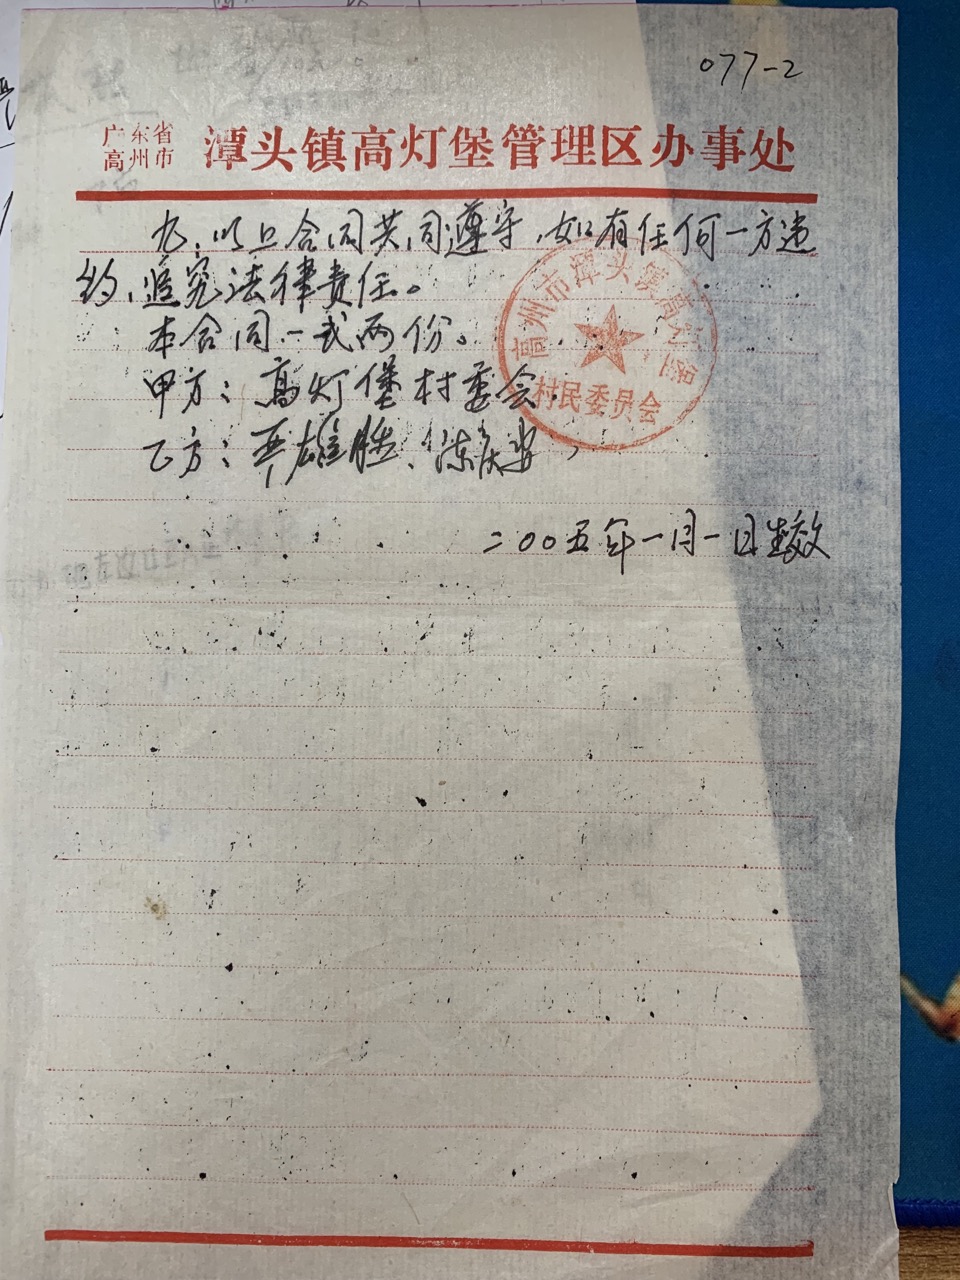 077-2
广东省
高州市
潭头镇高灯堡管理区办事处
九、以上合同共同遵守,如有任何一方违
约,追究法律责任。
本合同一式两份。
甲方:高灯堡村委会.
高州市潭头镇高灯堡
村民委员会
乙方:雄胜、陈庆
二00五年一月一日生效